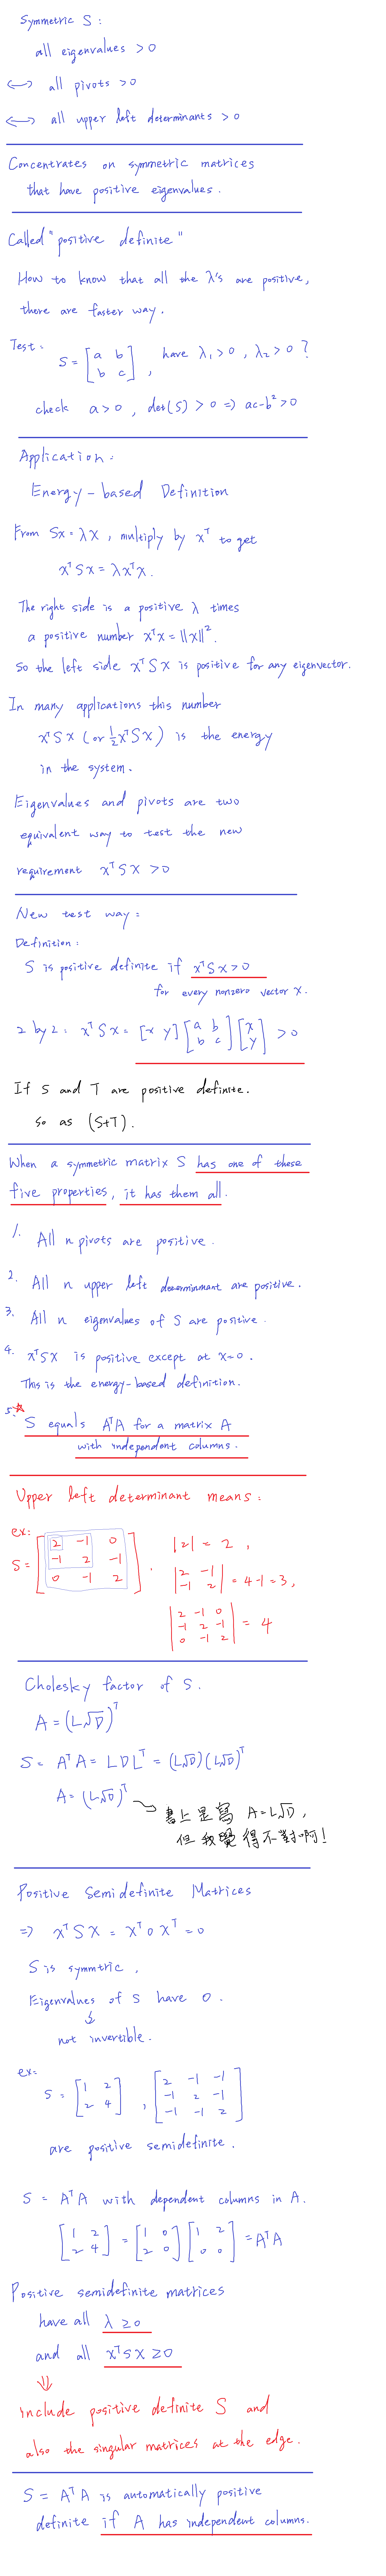 Symmetric S :
all eigenvalues > 0
<-> all pivots > 0
<-> all upper left determinants > 0
Concentrates on symmetric matrices
that have positive eigenvalues.
Called "positive definite"
How to know that all the λ's are positive,
there are faster way.
Test: S = [a b; b c], have λ₁>0, λ₂>0 ?
check a>0, det(S) > 0 => ac-b²>0
Application:
Energy-based Definition
From Sx = λx, multiply by xᵀ to get
xᵀSx = λxᵀx.
The right side is a positive λ times
a positive number xᵀx = ||x||².
So the left side xᵀSx is positive for any eigenvector.
In many applications this number
xᵀSx (or ½xᵀSx) is the energy
in the system.
Eigenvalues and pivots are two
equivalent way to test the new
requirement xᵀSx > 0
New test way:
Definition:
S is positive definite if xᵀSx>0
for every nonzero vector x.
2 by 2: xᵀSx = [x y] [a b; b c] [x; y] > 0
If S and T are positive definite.
So as (S+T).
When a symmetric matrix S has one of these
five properties, it has them all.
1. All n pivots are positive.
2. All n upper left determinant are positive.
3. All n eigenvalues of S are positive.
4. xᵀSx is positive except at x=0.
This is the energy-based definition.
5. S equals AᵀA for a matrix A
with independent columns.
Upper left determinant means:
ex:
S = [2 -1 0; -1 2 -1; 0 -1 2].
|2| = 2,
|2 -1; -1 2| = 4-1 = 3,
|2 -1 0; -1 2 -1; 0 -1 2| = 4
Cholesky factor of S.
A = (L√D)ᵀ
S = AᵀA = LDLᵀ = (L√D)(L√D)ᵀ
A = (L√D)ᵀ
書上是寫 A=L√D,
但我覺得不對啊!
Positive Semidefinite Matrices
=> xᵀSx = xᵀ0xᵀ = 0
S is symmtric.
Eigenvalues of S have 0.
not invertible.
ex:
S = [1 2; 2 4], [2 -1 -1; -1 2 -1; -1 -1 2]
are positive semidefinite.
S = AᵀA with dependent columns in A.
[1 2; 2 4] = [1 0; 2 0] [1 2; 0 0] = AᵀA
Positive semidefinite matrices
have all λ ≥ 0
and all xᵀSx ≥ 0
include positive definite S and
also the singular matrices at the edge.
S = AᵀA is automatically positive
definite if A has independent columns.